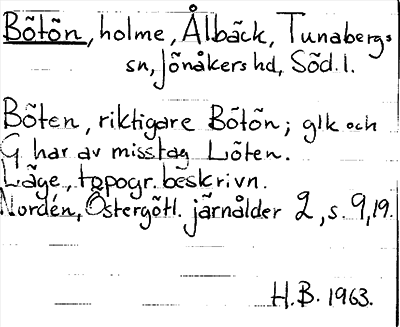 Bötön, holme, Ålbäck, Tunabergs
sn, Jönåkers hd, Söd. l.
Böten, riktigare Bötön; glk och
G har av misstag Löten.
Läge, topogr. beskrivn.
Nordén, Östergötl. järnålder 2, s. 9, 19.
H.B. 1963.